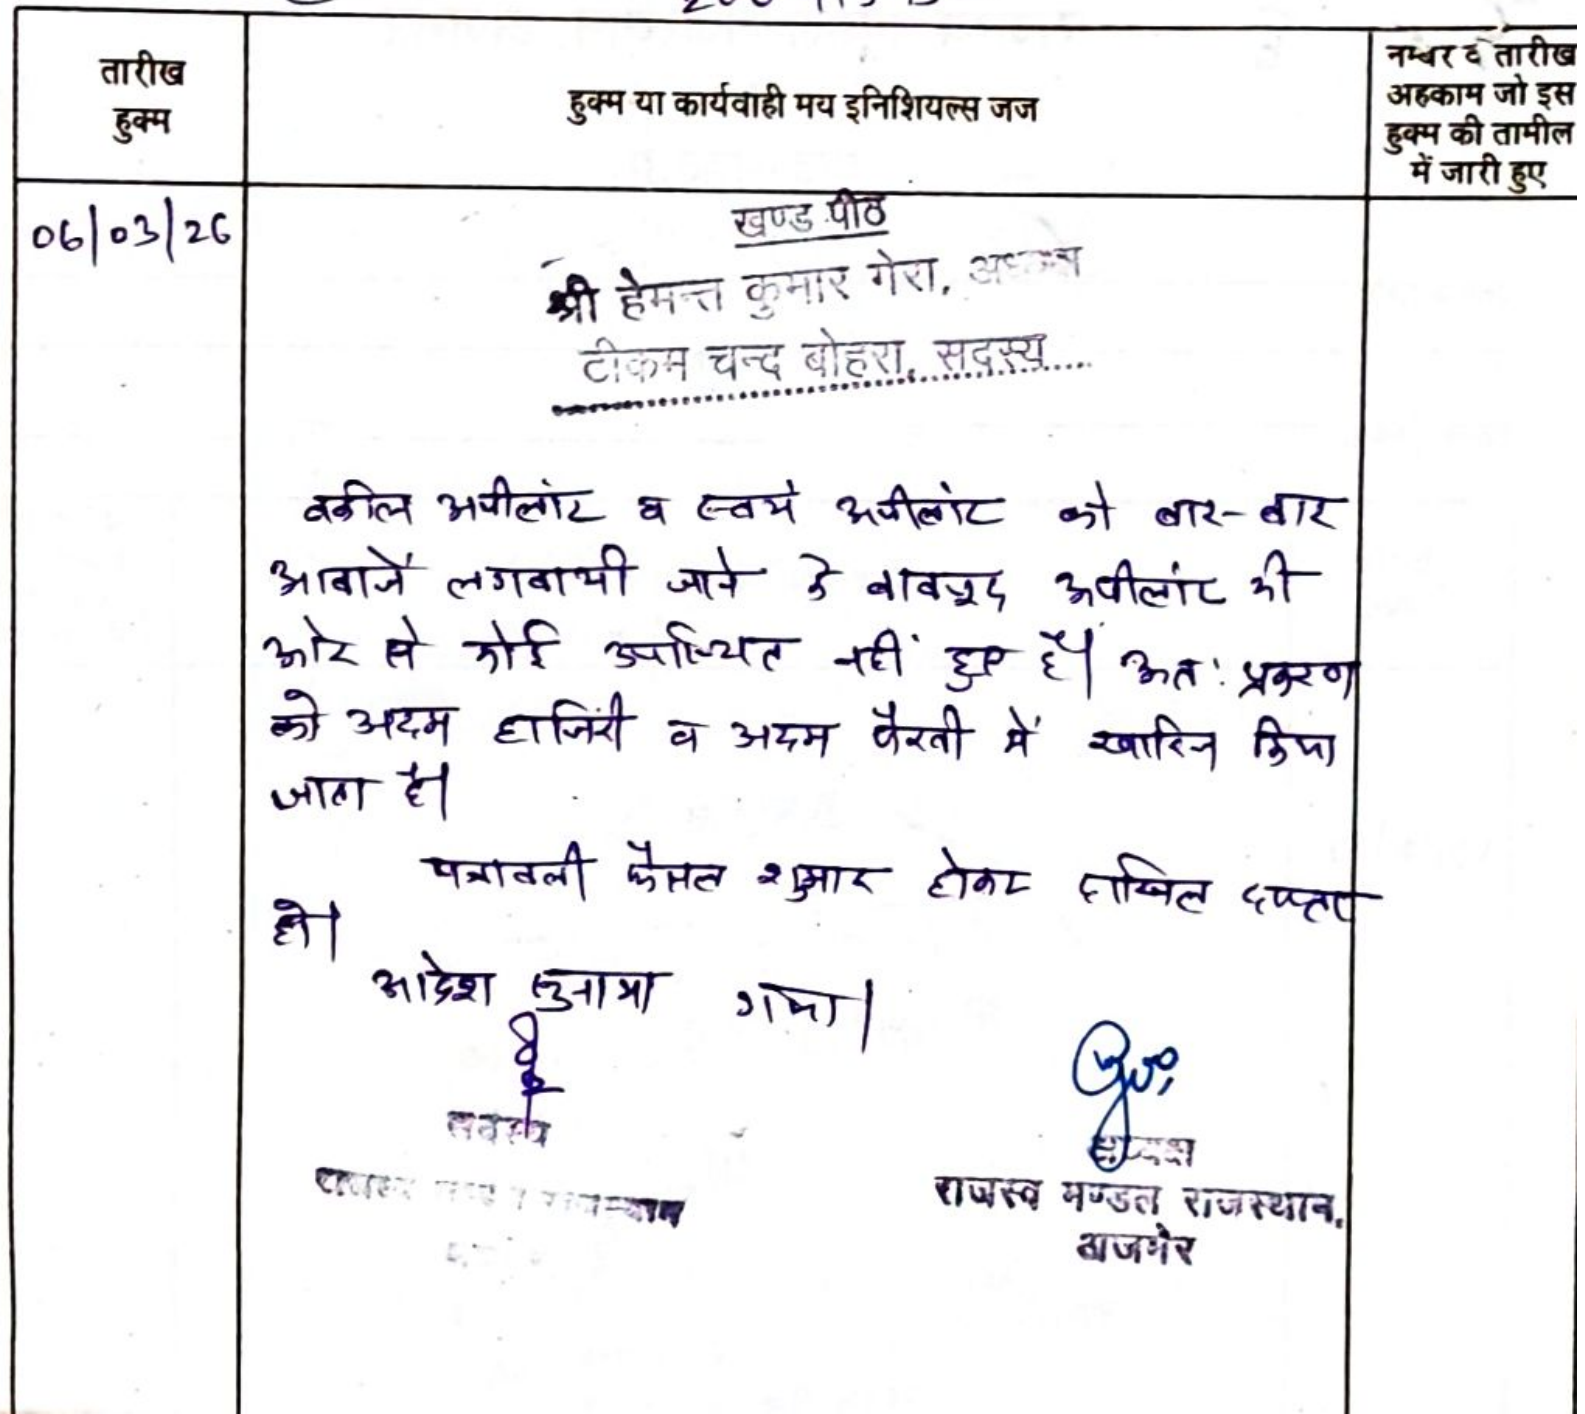 तारीख
हुक्म
हुक्म या कार्यवाही मय इनिशियल्स जज
नम्बर व तारीख
अहकाम जो इस
हुक्म की तामील
में जारी हुए
06/03/26
खण्ड पीठ
श्री हेमन्त कुमार गेरा, अध्यक्ष
टीकम चन्द बोहरा, सदस्य....
वकील अपीलांट व स्वयं अपीलांट को बार-बार
आवाजें लगवायी जाने के बावजूद अपीलांट की
ओर से कोई उपस्थित नहीं हुए हैं। अतः प्रकरण
को अदम हाजिरी व अदम पैरवी में खारिज किया
जाता है।
पत्रावली फैसल शुमार होकर दाखिल दफ्तर
हो।
आदेश सुनाया गया।
सदस्य
राजस्व मण्डल राजस्थान
अध्यक्ष
राजस्व मण्डल राजस्थान,
अजमेर